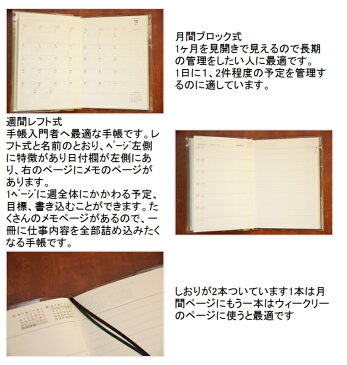 月間ブロック式
1ヶ月を見開きで見えるので長期
の管理をしたい人に最適です。
1日に1、2件程度の予定を管理す
るのに適しています。
週間レフト式
手帳入門者へ最適な手帳です。レ
フト式と名前のとおり、ﾍﾟｰｼﾞ左側
に特徴があり日付欄が左側にあ
り、右のページにメモのページが
あります。
1ﾍﾟｰｼﾞに週全体にかかわる予定、
目標、書き込むことができます。た
くさんのメモページがあるので、一
冊に仕事内容を全部詰め込みたく
なる手帳です。
しおりが2本ついています1本は月
間ページにもう一本はウィークリー
のページに使うと最適です